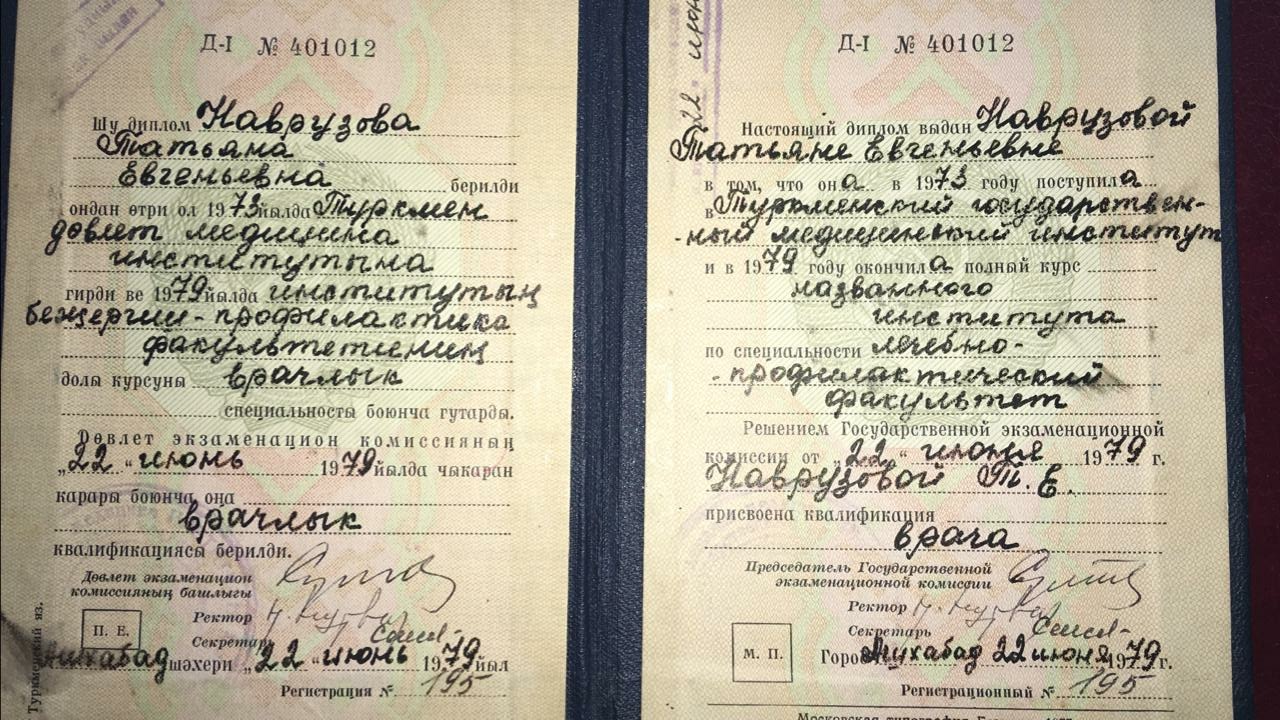 Д-I № 401012
Шу диплом Наврузова
Татьяна
Евгеньевна берилди
ондан өтри ол 1973 йылда Түркмен
дөвлет медицина
институтына
гирди ве 1979 йылда институтың
бежергии-профилактика
факультетиниң
долы курсуны врачлык
специальносты боюнча гутарды.
Дөвлет экзаменацион комиссияның
„22“ июнь 1979 йылда чыкаран
карары боюнча оңа
врачлык
квалификациясы берилди.
Дөвлет экзаменацион
комиссияның башлыгы
Ректор
Секретарь
П. Е.
Ашхабад шәхери „22“ июнь 1979 йыл
Регистрация № 195
Туркменский яз.
22 июн
Д-I № 401012
Настоящий диплом выдан Наврузовой
Татьяне Евгеньевне
в том, что она в 1973 году поступила
в Туркменский государствен-
-ный медицинский институт
и в 1979 году окончила полный курс
названного
института
по специальности лечебно-
-профилактический
факультет
Решением Государственной экзаменационной
комиссии от „22“ июня 1979 г.
Наврузовой Т. Е.
присвоена квалификация
врача
Председатель Государственной
экзаменационной комиссии
Ректор
Секретарь
М. П.
Город Ашхабад 22 июня 1979 г.
Регистрационный № 195
Московская типография